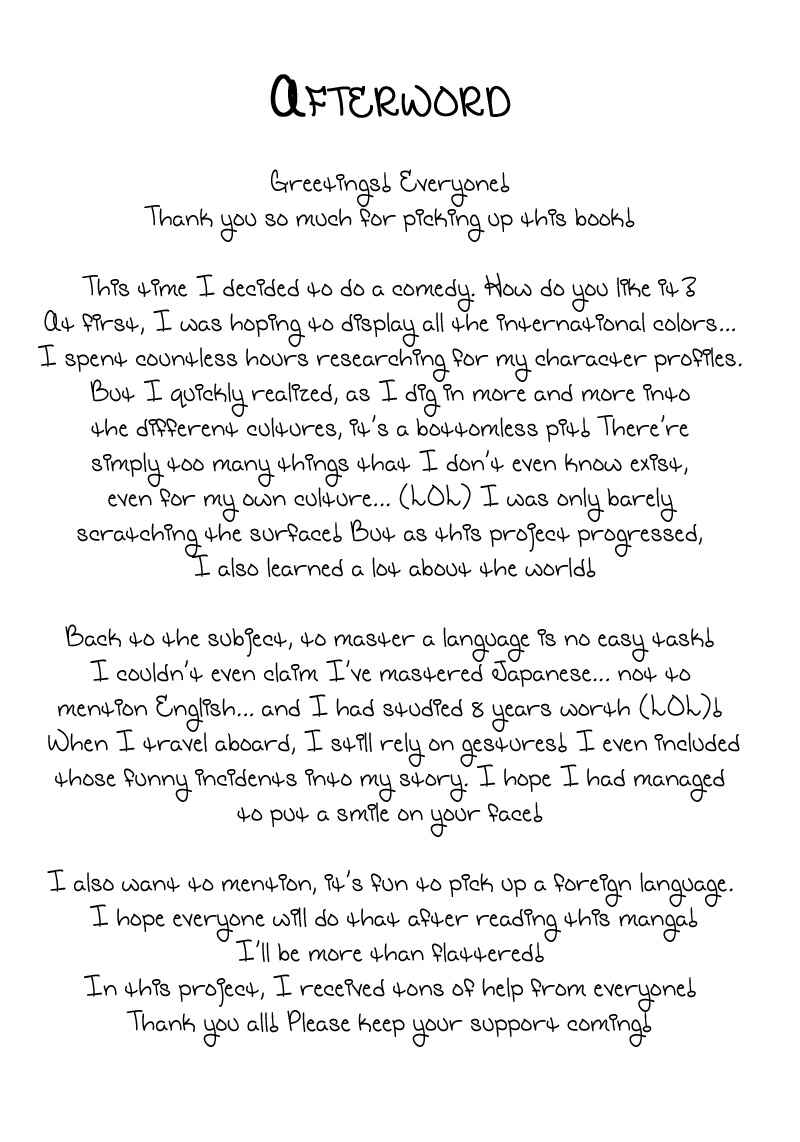 AFTERWORD
Greetings! Everyone!
Thank you so much for picking up this book!
This time I decided to do a comedy. How do you like it?
At first, I was hoping to display all the international colors...
I spent countless hours researching for my character profiles.
But I quickly realized, as I dig in more and more into
the different cultures, it's a bottomless pit! There're
simply too many things that I don't even know exist,
even for my own culture... (LOL) I was only barely
scratching the surface! But as this project progressed,
I also learned a lot about the world!
Back to the subject, to master a language is no easy task!
I couldn't even claim I've mastered Japanese... not to
mention English... and I had studied 8 years worth (LOL)!
When I travel aboard, I still rely on gestures! I even included
those funny incidents into my story. I hope I had managed
to put a smile on your face!
I also want to mention, it's fun to pick up a foreign language.
I hope everyone will do that after reading this manga!
I'll be more than flattered!
In this project, I received tons of help from everyone!
Thank you all! Please keep your support coming!